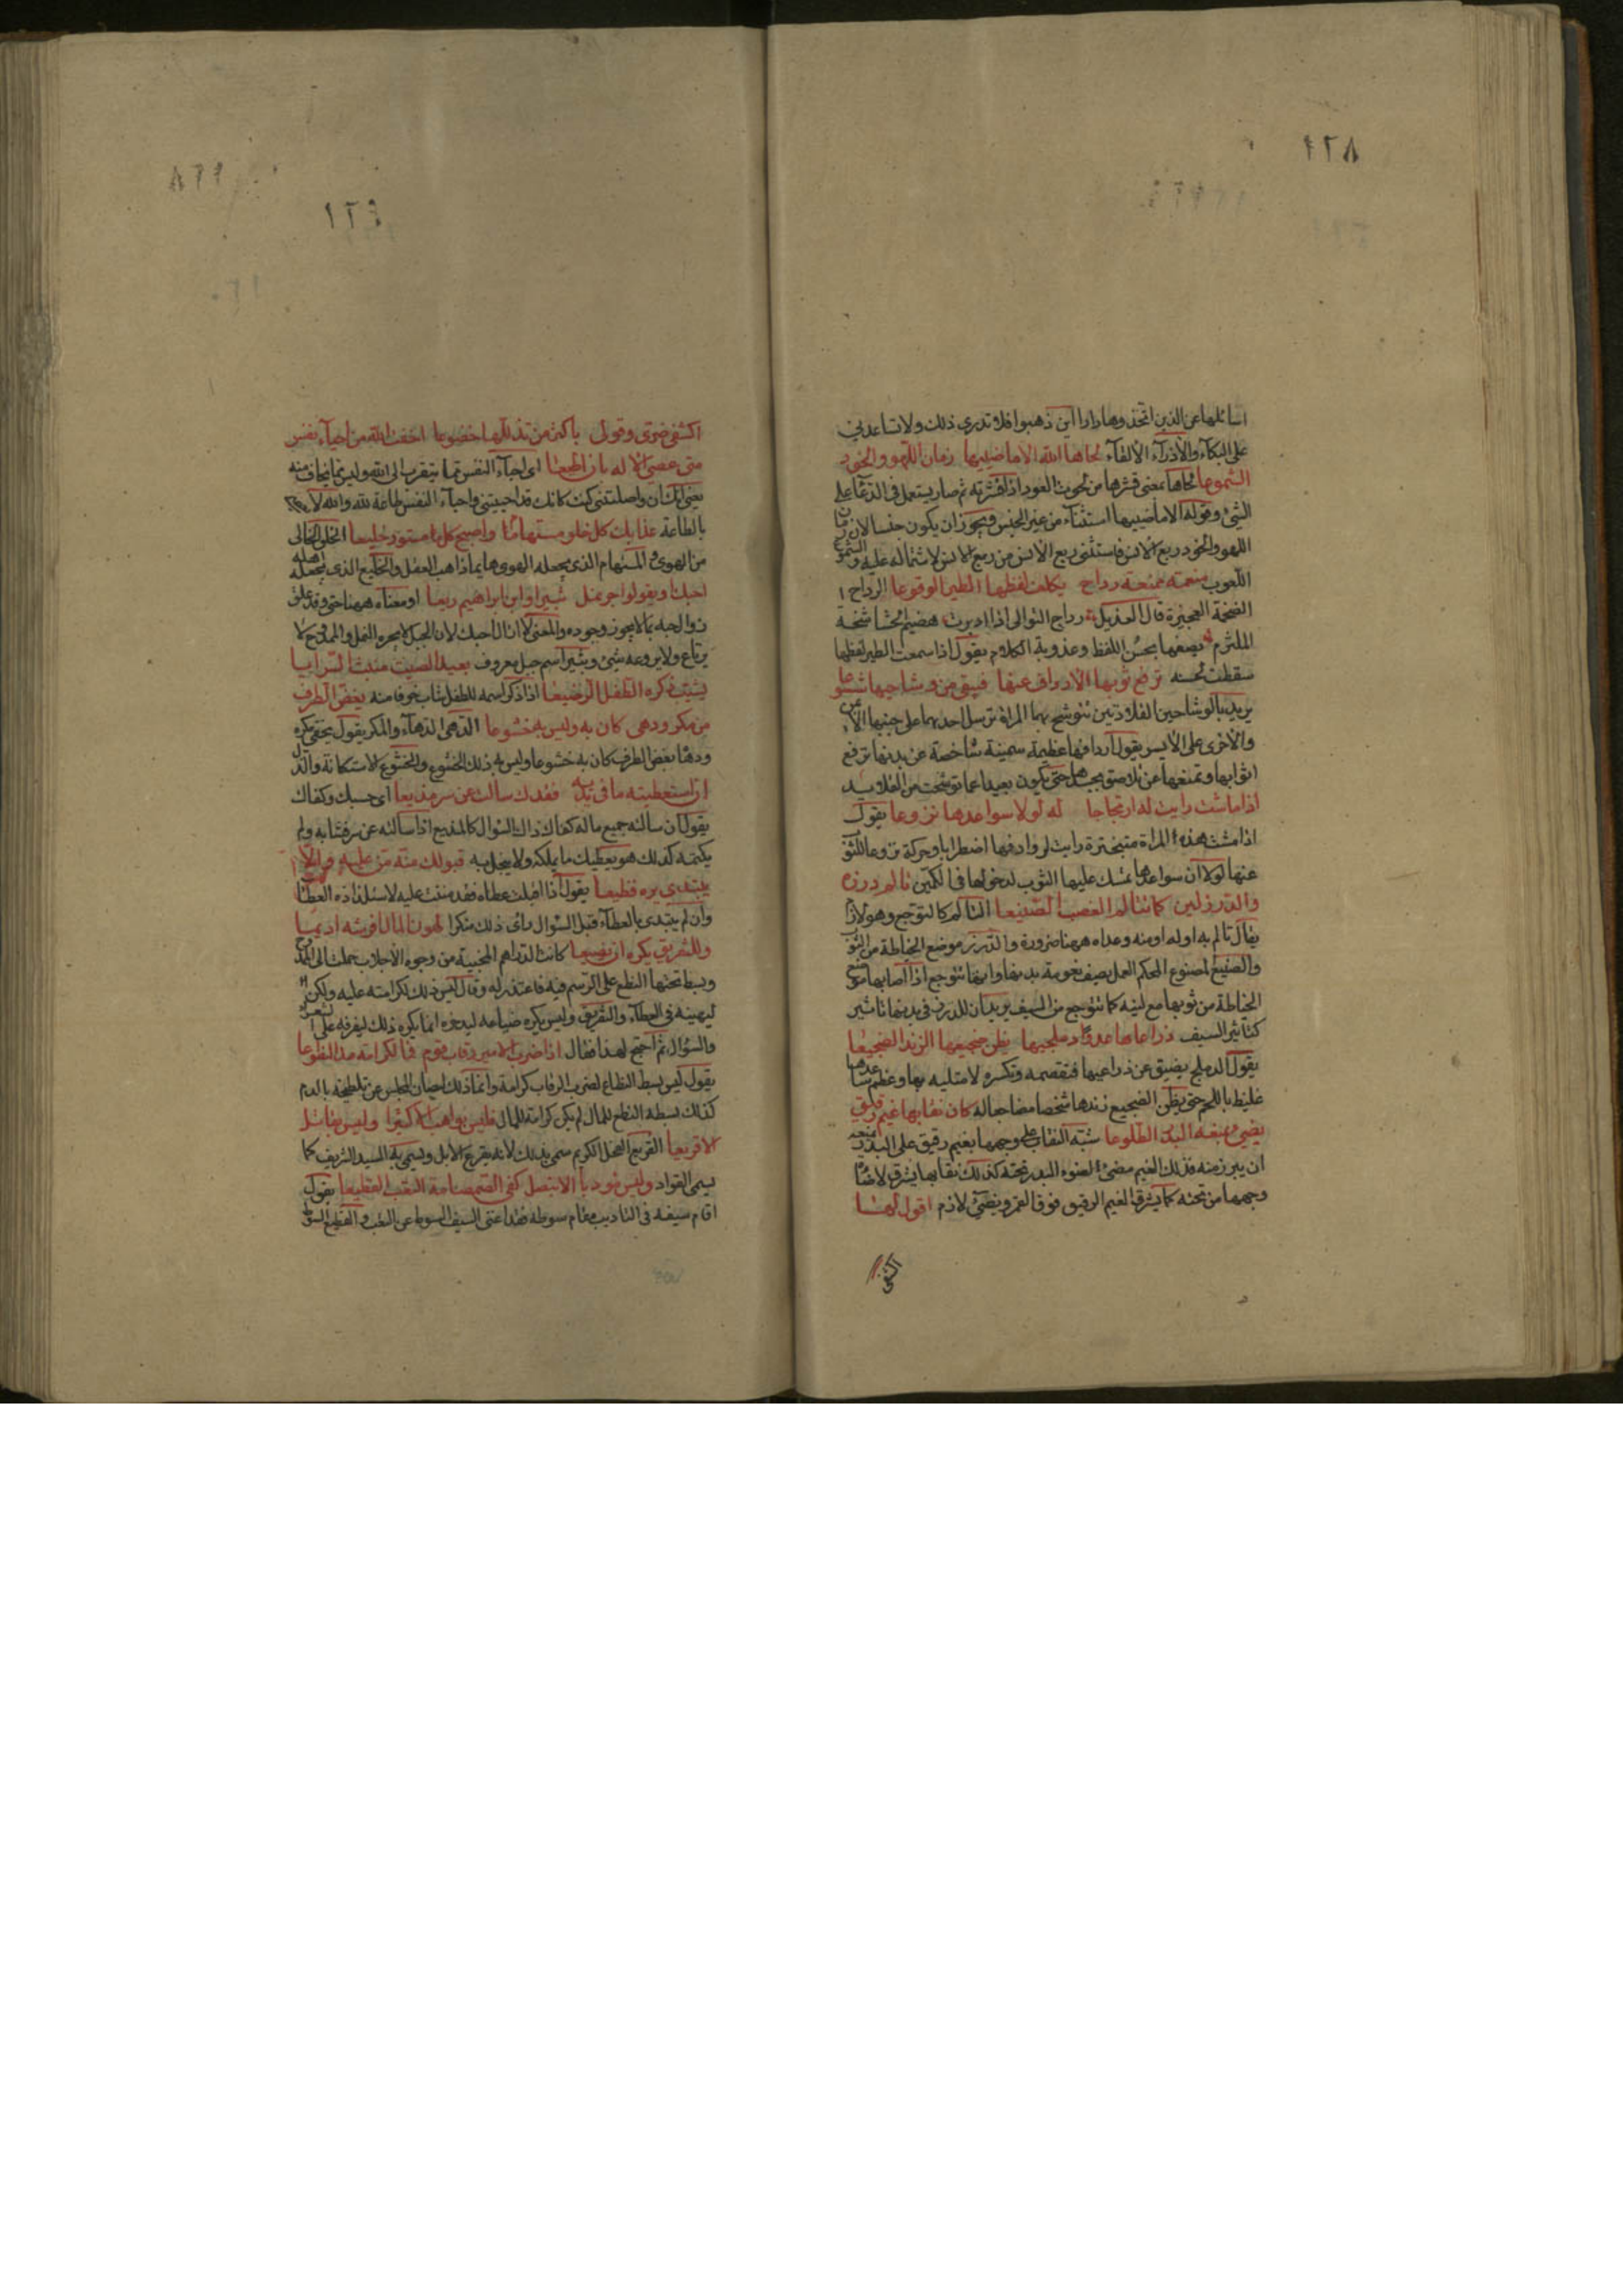 ١٢٨
اسائلها عن الذين اتخذوها دارا اين ذهبوا فلا تدرى ذلك ولا تساعدنى
على البكاء والاذراء الالقاء لحاها الله الا ماضييها زمان اللهو والخود
الشموعا لحاها بمعنى قشرها من لحوت العود اذا قشرته ثم صار يستعمل فى الدعا على
الشئ وقوله الا ماضييها استثناء من غير الجنس ويجوز ان يكون جنسا لان زمان
اللهو والخود ربع الانس فاستثنى ربع الانس من ربع الانس لاشتماله عليه والشموع
اللعوب منعمة ممنعة رداح يكلف لفظها الطير الوقوعا الرداح
الضخمة العجيزة قال العديل رداح التوالى اذا ادبرت هضيم الحشا شختة
الملتزم يصفها بحسن اللفظ وعذوبة الكلام يقول اذا سمعت الطير لفظها
سقطت لحسنه ترفع ثوبها الارداف عنها فيبقى من وشاحيها شسوعا
يريد بالوشاحين القلادتين تتوشح بهما المراة ترسل احديهما على جنبها الايمن
والاخرى على الايسر يقول اردافها عظيمة سمينة شاخصة عن بدنها ترفع
اثوابها وتمنعها عن تلاصق بجسدها حتى يكون بعيدا عما توشحت من القلايد
اذا ماست رايت لها ارتجاجا له لولا سواعدها نزوعا يقول
اذا مشت هذه المراة متبخترة رايت لروادفها اضطرابا وحركة نزوعا للثوب
عنها لولا ان سواعدها تمسك عليها الثوب لدخولها فى الكمين تالم درزه
والدرز لين كما تتالم العضب الصنيعا التالم كالتوجع وهو لازم
يقال تالم به اوله او منه وعداه ههنا ضرورة والدرز موضع الخياطة من الثوب
والصنيع المصنوع المحكم العمل يصف نعومة بدنها وانها تتوجع اذا اصابها موضع
الخياطة من ثوبها مع لينه كما تتوجع من السيف يريد ان للدرز فى بدنها تاثير
كتاثير السيف ذراعاها عدوا دملجيها يظن ضجيعها الزند الضجيعا
يقول الدملج يضيق عن ذراعيها فتقصمه وتكسره لامتلائه بها وعظم ساعدها
غليظ باللحم حتى يظن الضجيع زندها شخصا مضاجعا له كان نقابها غيم رقيق
يضئ بمنعه البدر الطلوعا شبه النقاب على وجهها بغيم رقيق على البدر يمنعه
ان يبرز منه فذلك الغيم مضئ لضوء البدر تحته كذلك نقابها يشرق لاضاءة
وجهها من تحته كما يشرق الغيم الرقيق فوق القمر ويضئ لازم اقول لها
اكشفى
١٢٩
اكشفى ضرى وقولى باكثر من تدللها خضوعا اخفت الله من احياء نفس
متى عصى الاله بان اطيعا اى احياء النفس مما يتقرب الى الله وليس مما يخاف منه
يعنى انك ان واصلتنى كنت كانك قد احييتنى واحياء النفس طاعة لله والله لا يعصى
بالطاعة غدا بك كل خلو مستهاما واصبح كل مستور خليعا الخلو الخالى
من الهوى والمستهام الذى يجعله الهوى هايما ذاهب العقل والخليع الذى يخلعه اهله
احبك او يقولوا جر نمل ثبيرا او ابن ابراهيم ريعا او معناه ههنا حتى وقد علق
زوال حبه بما لا يجوز وجوده والمعنى لا ازال احبك لان الجبل لا يجره النمل والممدوح لا
يرتاع ولا يروعه شئ وثبير اسم جبل معروف بعيد الصيت منبث السرايا
يشيب ذكره الطفل الرضيعا اذا ذكر اسمه للطفل شاب خوفا منه يغض الطرف
من مكر ودهى كان به وليس به خشوعا الدهى الدهاء والمكر يقول يخفى مكره
ودهاه بغض الطرف كان به خشوعا وليس به ذلك الخشوع والخشوع الاستكانة والذل
ان استعطيته ما فى يديه فقدك سالت عن سر مذيعا اى حسبك وكفاك
يقول ان سالته جميع ماله كفاك ذاك السؤال كالمذيع اذا سالته عن سر فشا به ولم
يكتمه كذلك هو يعطيك ما يملكه ولا يبخل به قبولك منه من عليه والا
يبتدى يره فظيعا يقول اذا قبلت عطاه فقد مننت عليه لاستلذاذه العطا
وان لم يبتدى بالعطاء قبل السؤال راى ذلك منكرا لهون المال افرشه اديما
وللتفريق يكره ان يضيعا كانت الدراهم المجبية من وجوه الاجلاب حملت الى الممدوح
وبسط تحتها النطع على الرسم فيه فاعتذر له وقال ليس ذلك لكرامته عليه ولكن
ليهينه فى العطاء والتفريق وليس يكره ضياعه ليدخره انما يكره ذلك ليفرقه على الشعراء
والسؤال ثم احتج لهذا فقال اذا ضرب الامير رقاب قوم فما لكرامة مد النطوعا
يقول ليس بسط النطاع لضرب الرقاب كرامة وانما ذلك لصيان المجلس عن تلطيخه بالدم
كذلك بسطه النطع للمال لم يكن كرامة للمال فليس بواهب الا كثيرا وليس بقاتل
الا قريعا القريع الفحل الكريم سمى بذلك لانه يقرع الابل وسمى به السيد الشريف كما
يسمى القواد وليس مودبا الا بنصل كفى الصمصامة التعب القطيعا يقول
اقام سيفه فى التاديب مقام سوطه فقد اغنى السيف السوط عن التعب والقطيع السوط